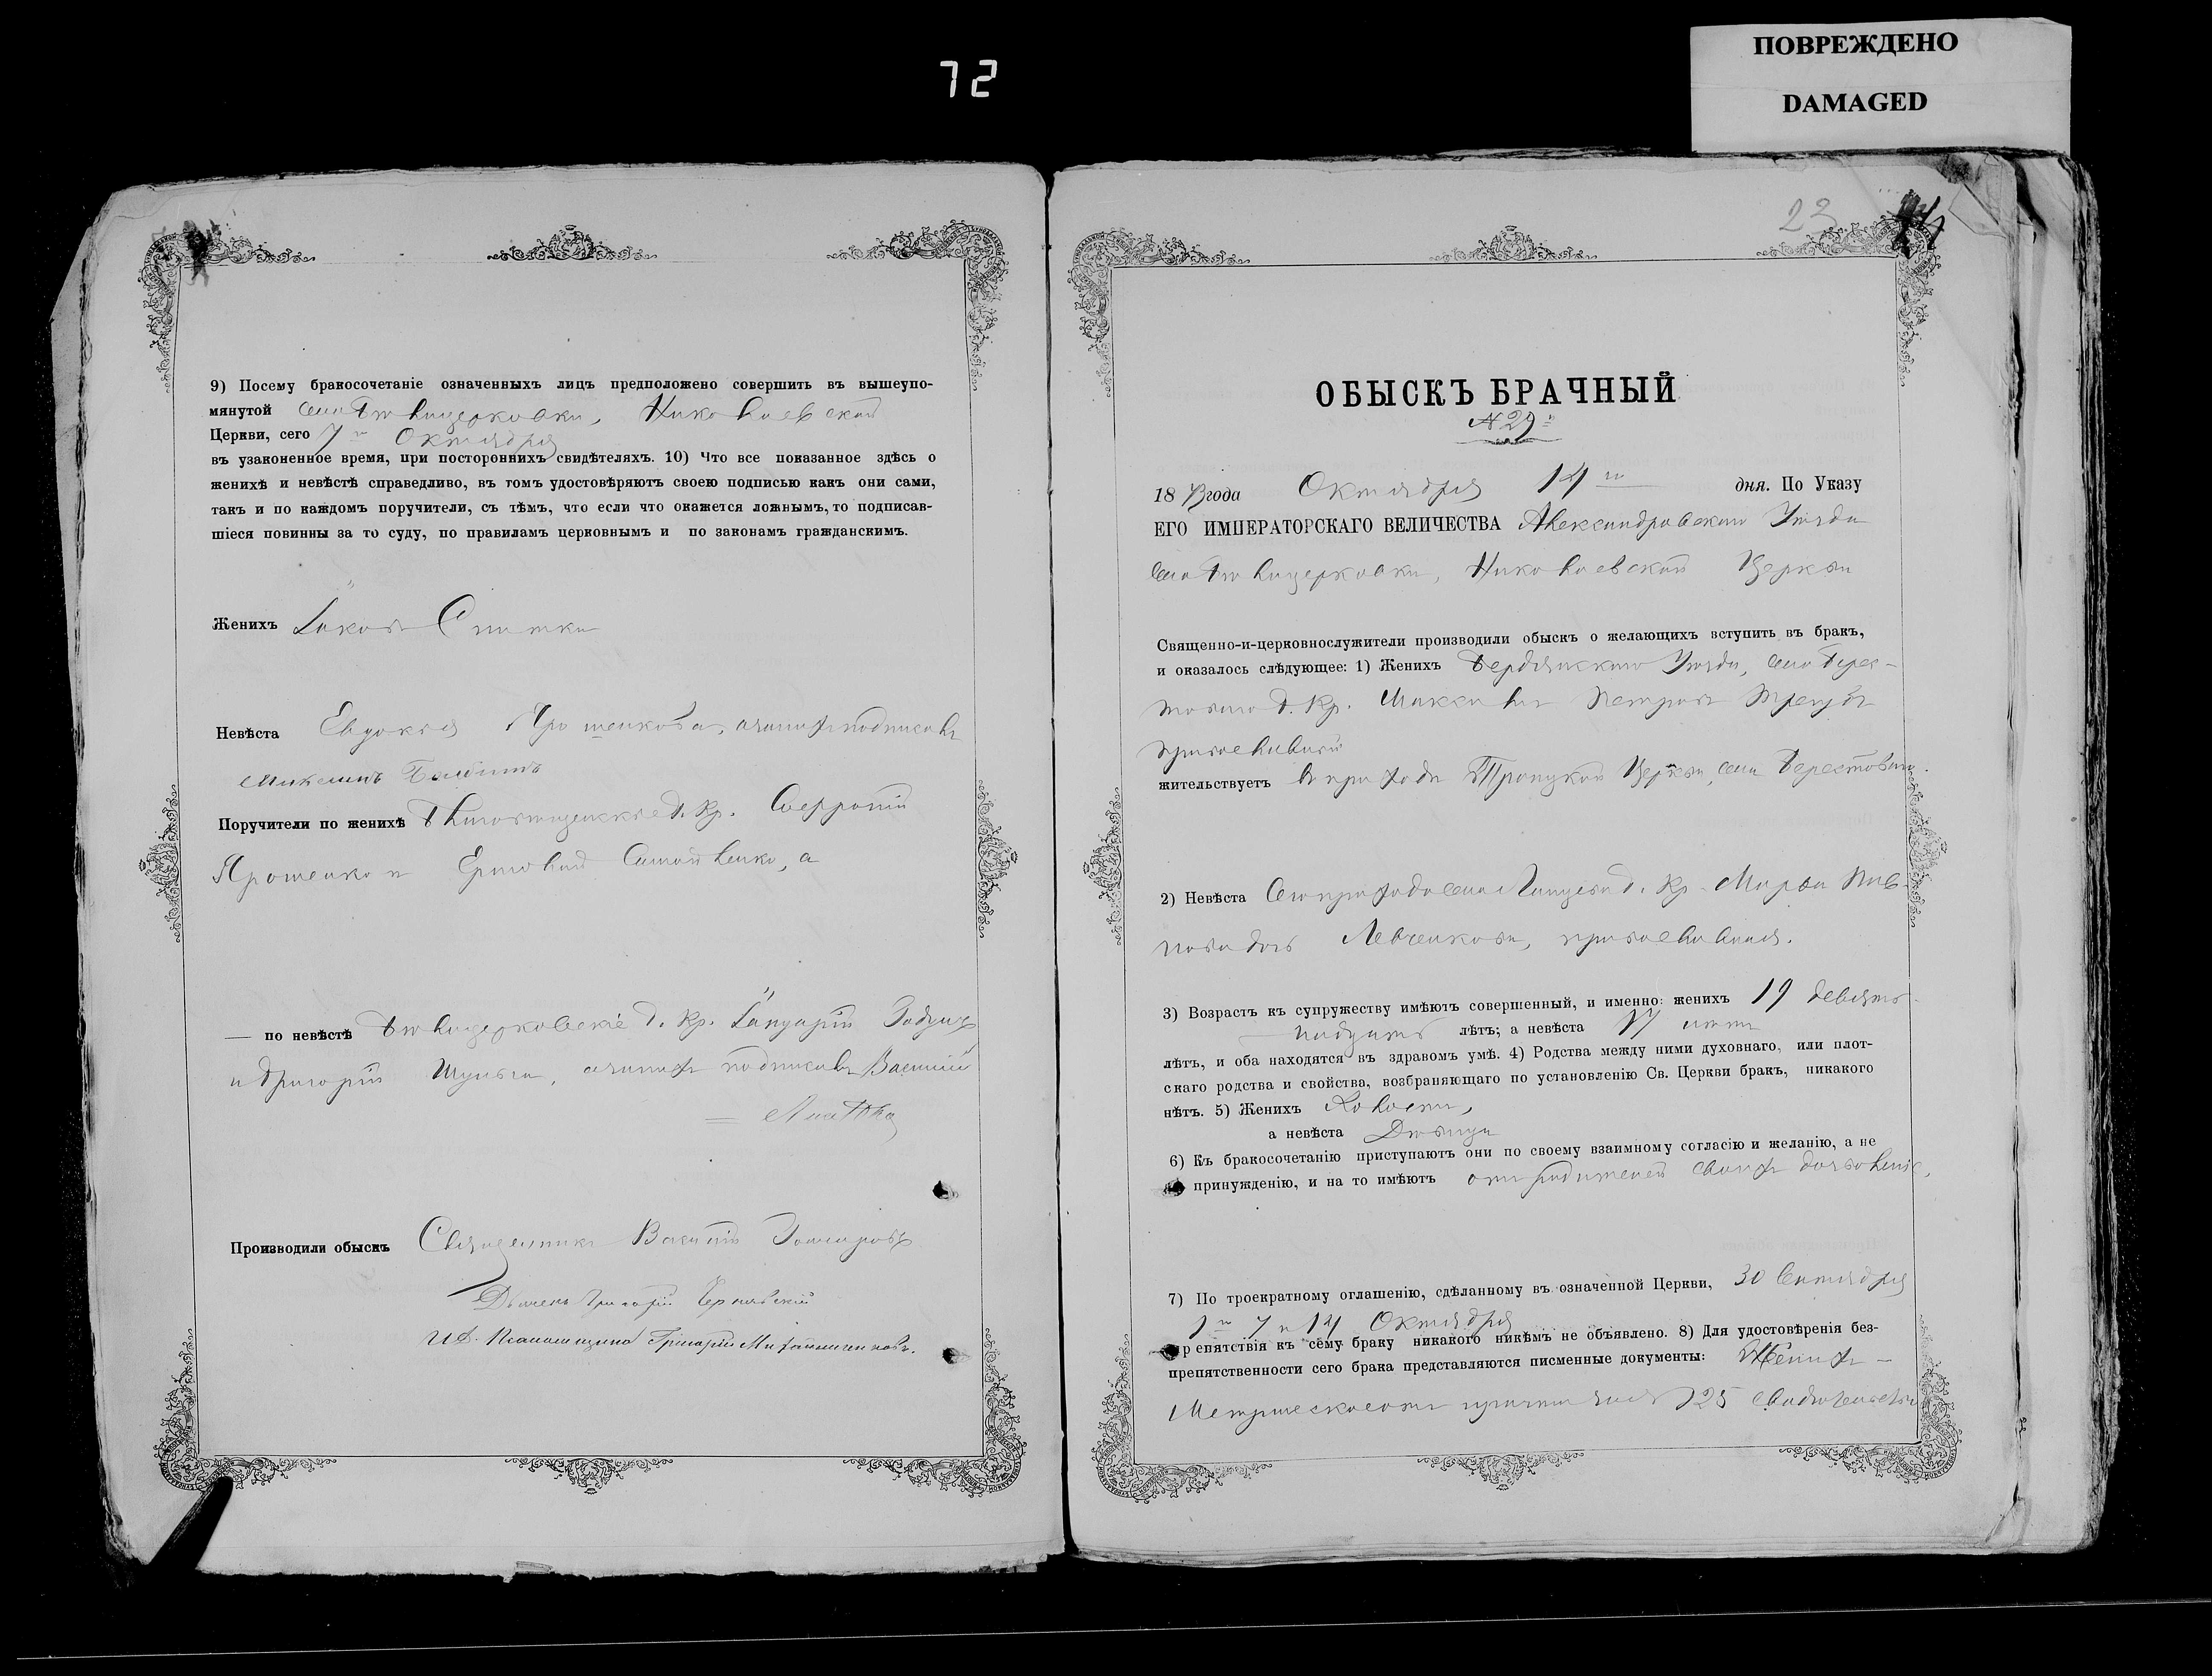 72
ПОВРЕЖДЕНО
DAMAGED
9) Посему бракосочетаніе означенныхъ лицъ предположено совершить въ вышеупо-
мянутой села Бѣлицерковки, Николаевской
Церкви, сего 7го Октября
въ узаконенное время, при постороннихъ свидѣтеляхъ. 10) Что все показанное здѣсь о
женихѣ и невѣстѣ справедливо, въ томъ удостовѣряютъ своею подписью какъ они сами,
такъ и по каждомъ поручители, съ тѣмъ, что если что окажется ложнымъ, то подписав-
шіеся повинны за то суду, по правиламъ церковнымъ и по законамъ гражданскимъ.
Женихъ Іаковъ
Невѣста Евдокія Ярошенкова, а за нихъ подписалъ
Поручители по женихѣ д. Кр. Софроній
Ярошенко и Ермолай Самойленко, а
— по невѣстѣ Бѣлицерковскіе д. Кр. Іануарій
и Григорій Шульга, а за нихъ подписалъ Василій
Производили обыскъ Священникъ Василій
Дьячекъ Григорій Чернявскій
И.д. Псаломщика Григорій
23
ОБЫСКЪ БРАЧНЫЙ
№ 29й
1873 года Октября 14го дня. По Указу
ЕГО ИМПЕРАТОРСКАГО ВЕЛИЧЕСТВА Александровскаго Уѣзда
села Бѣлицерковки, Николаевской Церкви
Священно-и-церковнослужители производили обыскъ о желающихъ вступить въ бракъ,
и оказалось слѣдующее: 1) Женихъ Бердянскаго Уѣзда, села Берес-
товаго д. Кр. Максимъ Петровъ
православный
жительствуетъ въ приходѣ Троицкой Церкви, села Берестоваго.
2) Невѣста Сего прихода села д. Кр. Марѳа
дочь Левченкова, православная.
3) Возрастъ къ супружеству имѣютъ совершенный, и именно: женихъ 19 девят-
надцать лѣтъ; а невѣста 17 лѣтъ
лѣтъ, и оба находятся въ здравомъ умѣ. 4) Родства между ними духовнаго, или плот-
скаго родства и свойства, возбраняющаго по установленію Св. Церкви бракъ, никакого
нѣтъ. 5) Женихъ Холостъ,
а невѣста Дѣвица
6) Къ бракосочетанію приступаютъ они по своему взаимному согласію и желанію, а не
принужденію, и на то имѣютъ отъ родителей своихъ дозволеніе,
7) По троекратному оглашенію, сдѣланному въ означенной Церкви, 30 Сентября
1го 7 и 14 Октября
препятствія къ сему браку никакого никѣмъ не объявлено. 8) Для удостовѣренія без-
препятственности сего брака представляются писменные документы: Жениха —
Метрическое отъ причта за № 125 свидѣтельство